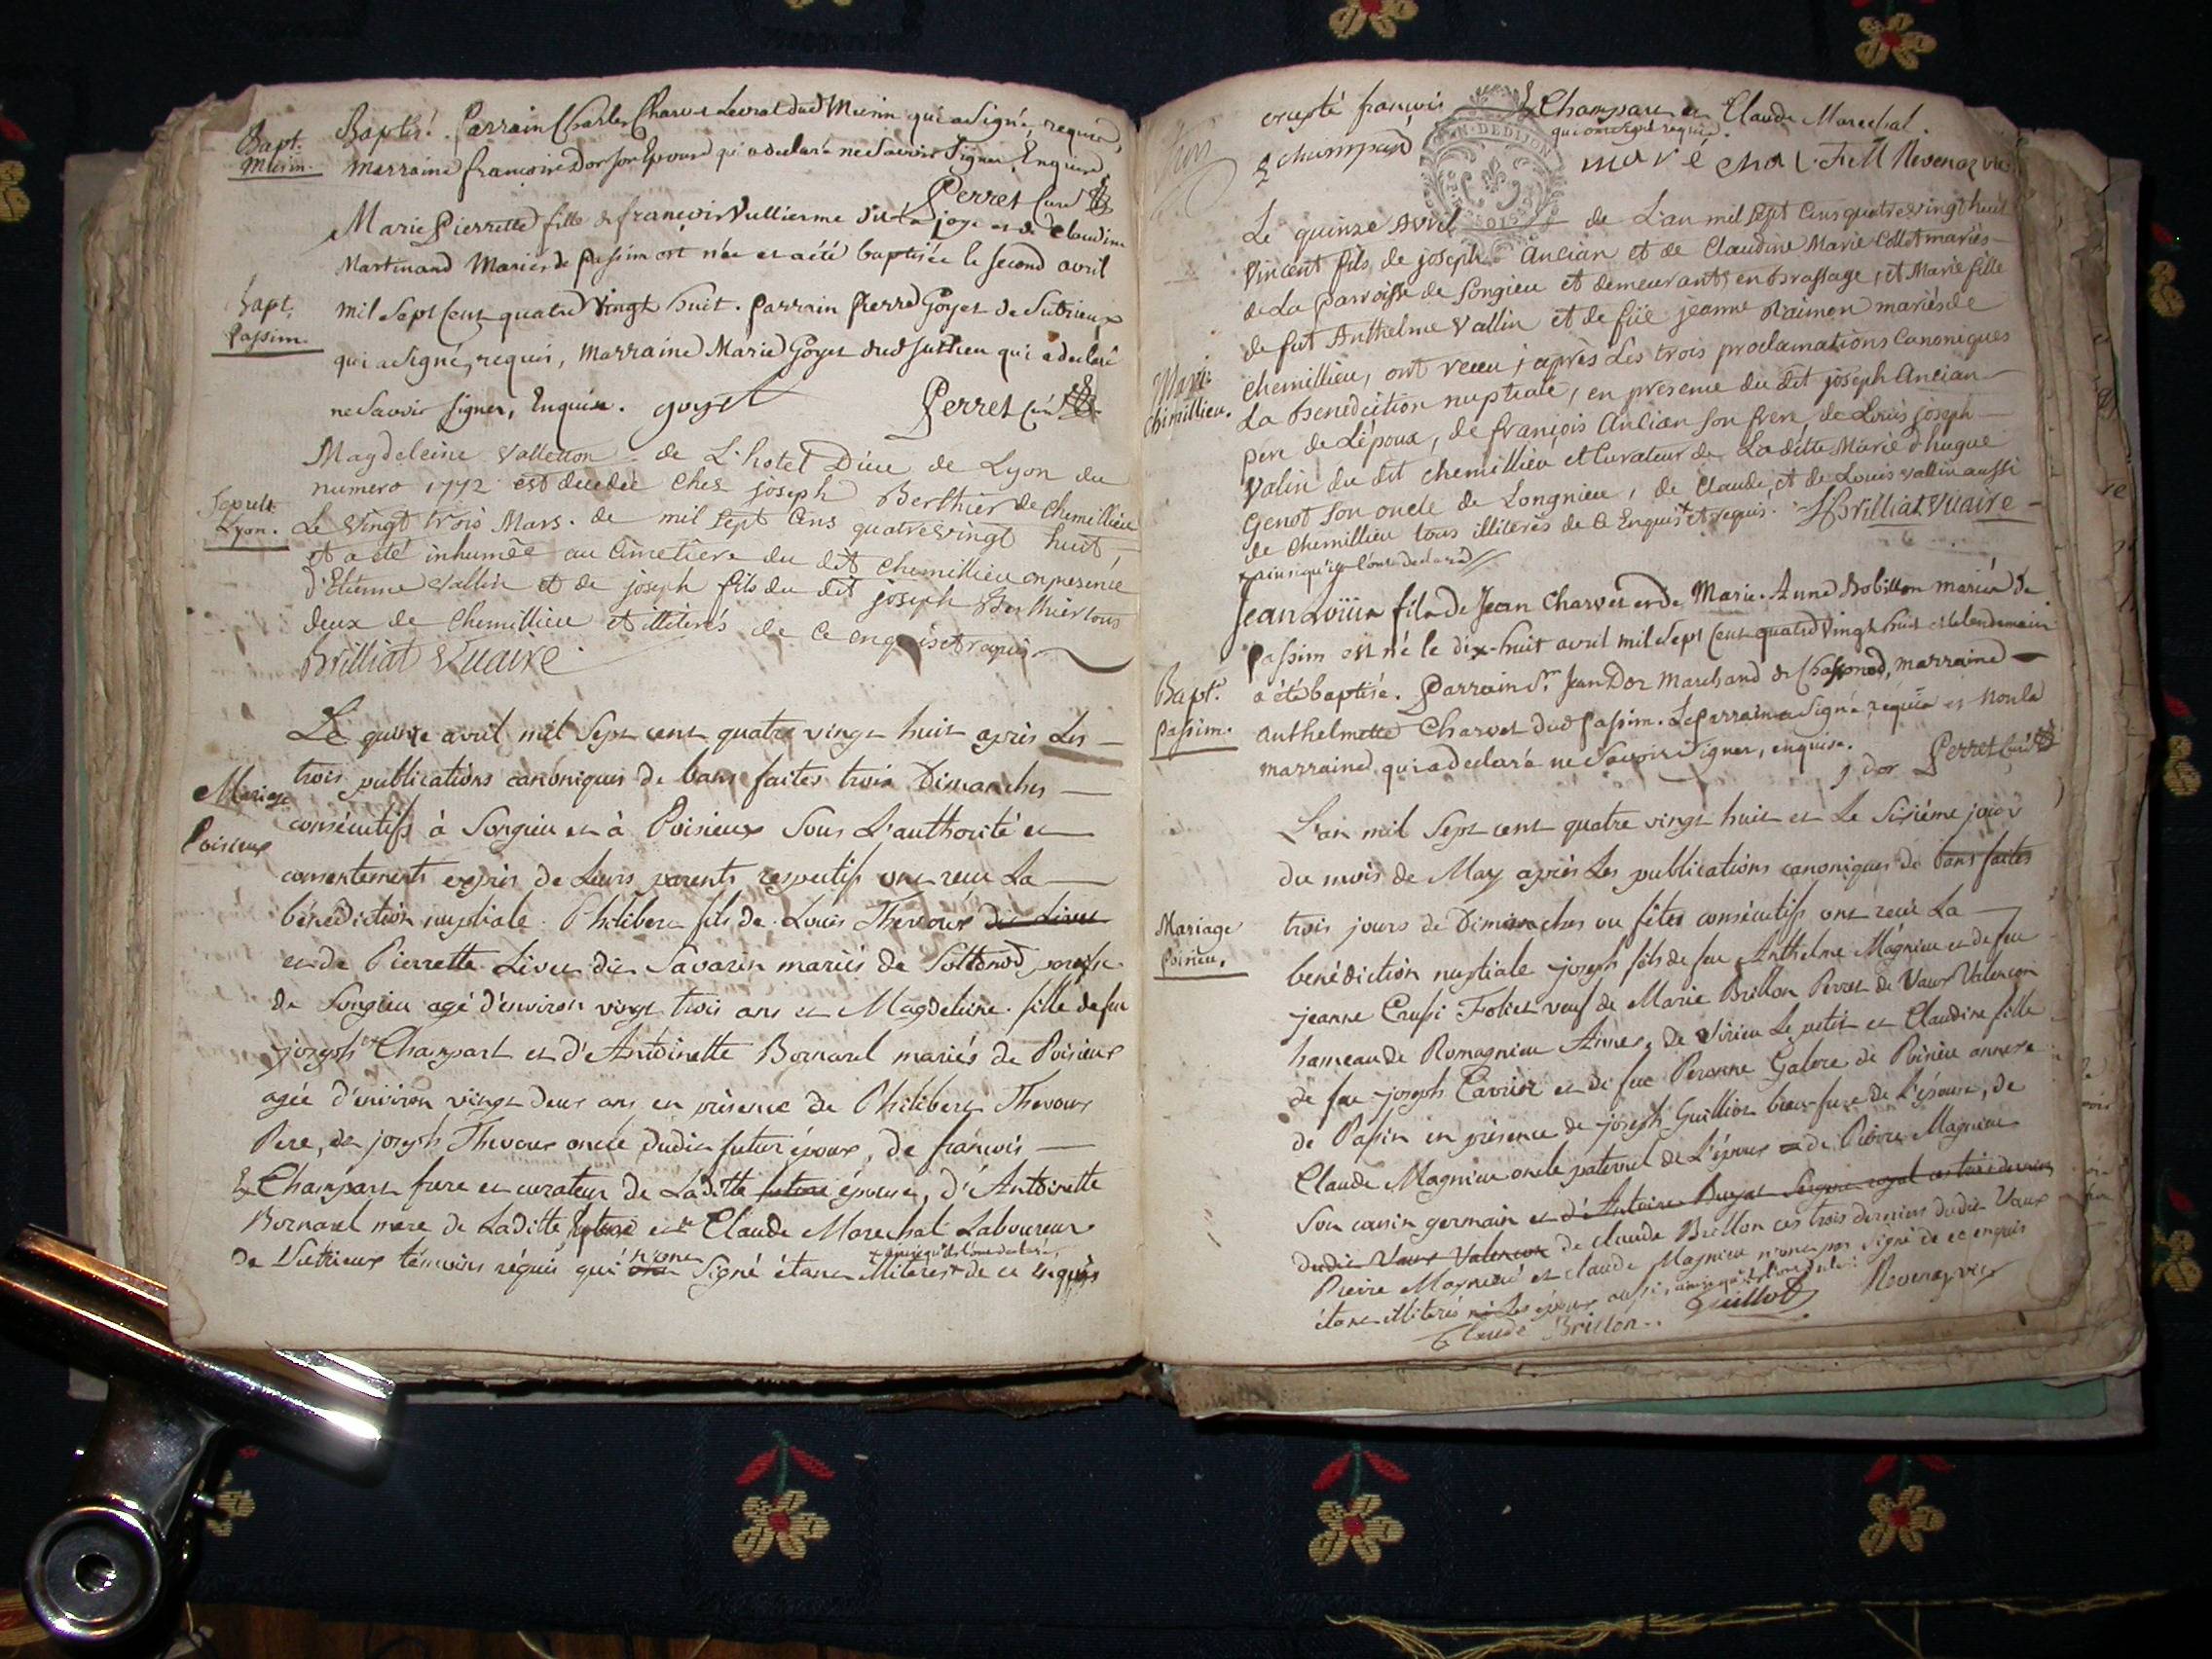 Bapt.
Musin.
Baptisé. Parrain Charles Charvet Levrat dud Musin qui a Signé, requis,
Marraine françoise Dor son Epouse qui a declaré ne Savoir Signer, Enquise
Perret Curé
Marie Pierrette fille de françois Vullierme dit La joye et de Claudine
Martinand Mariés de Passim est née et a été baptisée le second avril
Bapt.
Passim.
mil Sept Cent quatre Vingt huit. Parrain Pierre Goyet de Sutrieux
qui a Signé, requis, Marraine Marie Goyet dud Sutrieu qui a declaré
ne Savoir Signer, Enquise. goyet Perret Curé
Magdeleine Valletton de L'hotel Dieu de Lyon du
numero 1772 est decedée chez joseph Berthier de Chemillieu
Sepult.
Lyon.
Le vingt trois Mars. de mil sept Cens quatre vingt huit,
et a été inhumée au Cimetière du dit Chemillieu en presence
d'Etienne Vallin et de joseph fils du dit joseph Berthier tous
deux de Chemillieu et illiterés de ce enquis et requis
Brilliat Vicaire
Le quinze avril mil Sept cent quatre vingt huit après Les
trois publications canoniques de bans faites trois Dimanches
Mariage
Poisieux
consécutifs à Songieu et à Poisieux Sous L'authorité et
consentements exprès de Leurs parents respectifs ont reçu La
bénédiction nuptiale. Philibert fils de Louis Thevoux dit Livet
et de Pierrette Livet dit Savarin mariés de Sottonod paroisse
de Songieu agé d'environ vingt trois ans et Magdeleine fille de feu
joseph Champart et d'Antoinette Bornard mariés de Poisieux
agée d'environ vingt deux ans en présence de Philibert Thevoux
Pere, de joseph Thevoux oncle dudit futur époux, de françois
Champart frere et curateur de Laditte future épouse, d'Antoinette
Bornard mere de Laditte future et de Claude Marechal Laboureur
de Sutrieux témoins réquis qui n'ont Signé étant illiterés de ce enquis
ainsi qu'ils l'ont declaré
excepté françois Champart et Claude Marechal.
qui ont signé requis.
champard maréchal F. M Revenaz vic
Le quinze avril de L'an mil sept Cens quatre vingt huit
Vincent fils de joseph Ancian et de Claudine Marie Collet mariés
de La paroisse de Songieu et demeurants en Brassage, et Marie fille
de fut Anthelme Vallin et de füe jeanne Raimon mariés de
Mari.
Chimillieu.
Chemillieu, ont reçu, après Les trois proclamations Canoniques
La benediction nuptiale, en presence du dit joseph Ancian
père de L'époux, de françois Ancian son frere, de Louis joseph
Valin du dit Chemillieu et Curateur de La ditte Marie d'hugue
Genot son oncle de Longnieu, de Claude, et de Louis Vallin aussi
de Chemillieu tous illiterés de ce Enquis et requis. Brilliat Vicaire
ainsi qu'ils l'ont declaré
Jean Loüis fils de Jean Charvet et de Marie Anne Bobillon mariés de
Passim est né le dix-huit avril mil Sept Cent quatre Vingt huit et le lendemain
Bapt.
Passim.
a été baptisé. Parrain Sr. Jean Dor Marchand de Chassonod, marraine
Anthelmette Charvet dud Passim. Le parrain a Signé, requis et non la
marraine qui a declaré ne Savoir Signer, enquise. j dor Perret Curé
L'an mil Sept cent quatre vingt huit et Le Sixiéme jour
du mois de May après Les publications canoniques de bans faites
Mariage
Poisieu.
trois jours de Dimanches ou fêtes consécutifs ont reçu La
bénédiction nuptiale joseph fils de feu Anthelme Magnieu et de feu
jeanne Caussi Foliet veuf de Marie Brillon Perret de Vaux Valencon
hameau de Romagnieu Annexe de Virieu Le petit et Claudine fille
de feu joseph Carrier et de feue Peronne Galere de Poisieu annexe
de Passin en présence de joseph Guilliot beau-frere de L'épouse, de
Claude Magnieu oncle paternel de L'époux et de Pierre Magnieu
Son cousin germain et d'Antoine Sergent royal ces trois derniers
dudit Vaux Valencon de Claude Brillon ces trois derniers dudit Vaux
Pierre Magnieu et Claude Magnieu n'ont pas signé de ce enquis
étant illiterés ni Les époux aussi, ainsi qu'ils l'ont declaré
Guillot Revenaz vic
Claude Brillon